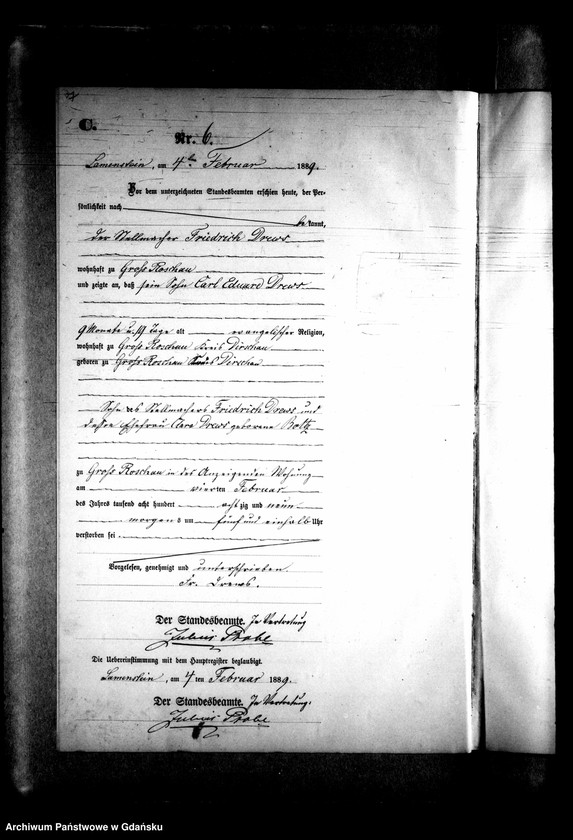 C.
Nr. 6.
Lamenstein, am 4ten Februar 1889.
Vor dem unterzeichneten Standesbeamten erschien heute, der Per-
sönlichkeit nach
be kannt,
der Stellmacher Friedrich Drews
wohnhaft zu Groß Roschau
und zeigte an, daß sein Sohn Carl Eduard Drews
9 Monate u. 19 Tage alt evangelischer Religion,
wohnhaft zu Groß Roschau Kreis Dirschau
geboren zu Groß Roschau Kreis Dirschau
Sohn des Stellmachers Friedrich Drews und
dessen Ehefrau Clara Drews geborene
zu Groß Roschau in des Anzeigenden Wohnung
am vierten Februar
des Jahres tausend acht hundert acht zig und neun
morgens um fünf und einhalb Uhr
verstorben sei
Vorgelesen, genehmigt und unterschrieben.
Fr. Drews.
Der Standesbeamte. In Vertretung
Julius
Die Uebereinstimmung mit dem Hauptregister beglaubigt.
Lamenstein, am 4 ten Februar 1889.
Der Standesbeamte. In Vertretung:
Julius
Archiwum Państwowe w Gdańsku